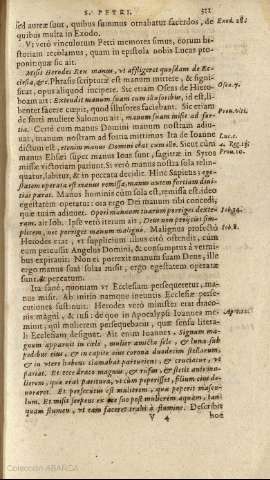 S. PETRI. 311
sed aureæ sunt, quibus summus ornabatur sacerdos, de
quibus multa in Exodo.
Exod. 28.
Vt verò vinculorum Petri memores simus, eorum hi-
storiam recolamus, quam in epistola nobis Lucas pro-
ponit: quæ sic ait.
Misit Herodes Rex manus, vt affligeret quosdam de Ec-
clesia, &c. Phrasi scripturæ est manum mittere, & signifi-
cat, opus aliquod incipere. Sic etiam Oseas de Hiero-
Osee. 7.
boam ait: Extendit manum suam cum illusoribus, id est, il-
lenter facere cœpit, quod illusores faciebant. Sic etiam
de forti muliere Salomon ait, manum suam misit ad for-
Prou. vlt.
tia. Certè cum manus Domini manum nostram adiu-
uat, manum nostram ad fortia mittimus. Ita de Ioanne
Luc. 1.
dictum est, etenim manus Domini erat cum ille. Sicut cùm
manus Elisæi super manus Ioas sunt, sagittæ in Syros
missæ victoriam pariunt. Si verò manus nostra sola relin-
quatur, labitur, & in peccata decidit. Hinc Sapiens: ege-
statem operata est manus remissa, manus autem fortium diui-
tias parat. Manus hominis cùm sola est, remissa est: ideo
egestatem operatur: ora ergo Dei manum tibi concedi,
quæ tuam adiuuet. Operi manuum tuarum porriges dexte-
ram, ait Iob. Ipse verò iterum ait: Deus non proijciet sim-
plicem, nec porriget manum malignis. Malignus profectò
Iob. 8.
Herodes erat, vt supplicium illius citò ostendit, cùm
eum percussit Angelus Domini, & consumptus à vermi-
bus expirauit. Non ei porrexit manum suam Deus, ille
ergo manus suas solas misit, ergo egestatem operatæ
sunt, & peccatum.
Ita sanè, quoniam vt Ecclesiam persequeretur, ma-
nus misit. Ab initio namque incutiis Ecclesiæ perse-
cutiones sustinuit. Herodes verò minister erat draco-
nis magni, & rufi: de quo in Apocalypsi Ioannes me-
minit, qui mulierem persequebatur, quæ sensu litera-
li Ecclesiam designat. Ait enim Ioannes, Signum ma-
gnum apparuit in cælo, mulier amicta sole, & luna sub
pedibus eius, & in capite eius corona duodecim stellarum,
& in vtero habens clamabat parturiens, & cruciatur, vt
pariat. Et ecce draco magnus, & rufus, & stetit ante mu-
lierem, quæ erat paritura, vt cùm peperisset, filium eius de-
uoraret. Et persecutus est mulierem, quæ peperit mascu-
lum. Et misit serpens ex ore suo post mulierem aquam, tan-
quam flumen, vt eam faceret trahi à flumine. Describit
V 4 hoc